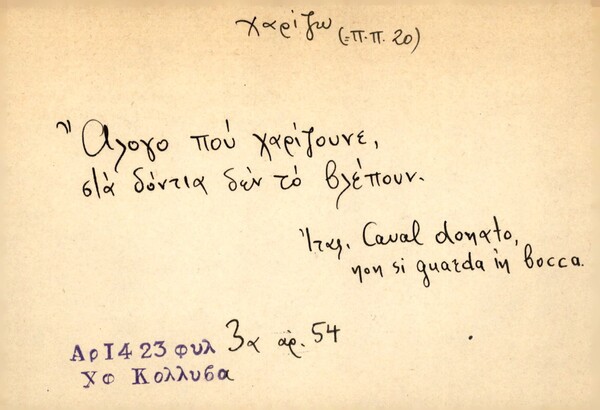 χαρίζω (=π.π. 20)
Ἄλογο πού χαρίζουνε,
στά δόντια δέν τό βλέπουν.
Ἰταλ. Caval donato,
non si guarda in bocca.
ΑρΙ4 23 φυλ 3α αρ. 54
Χφ Κολλυβα